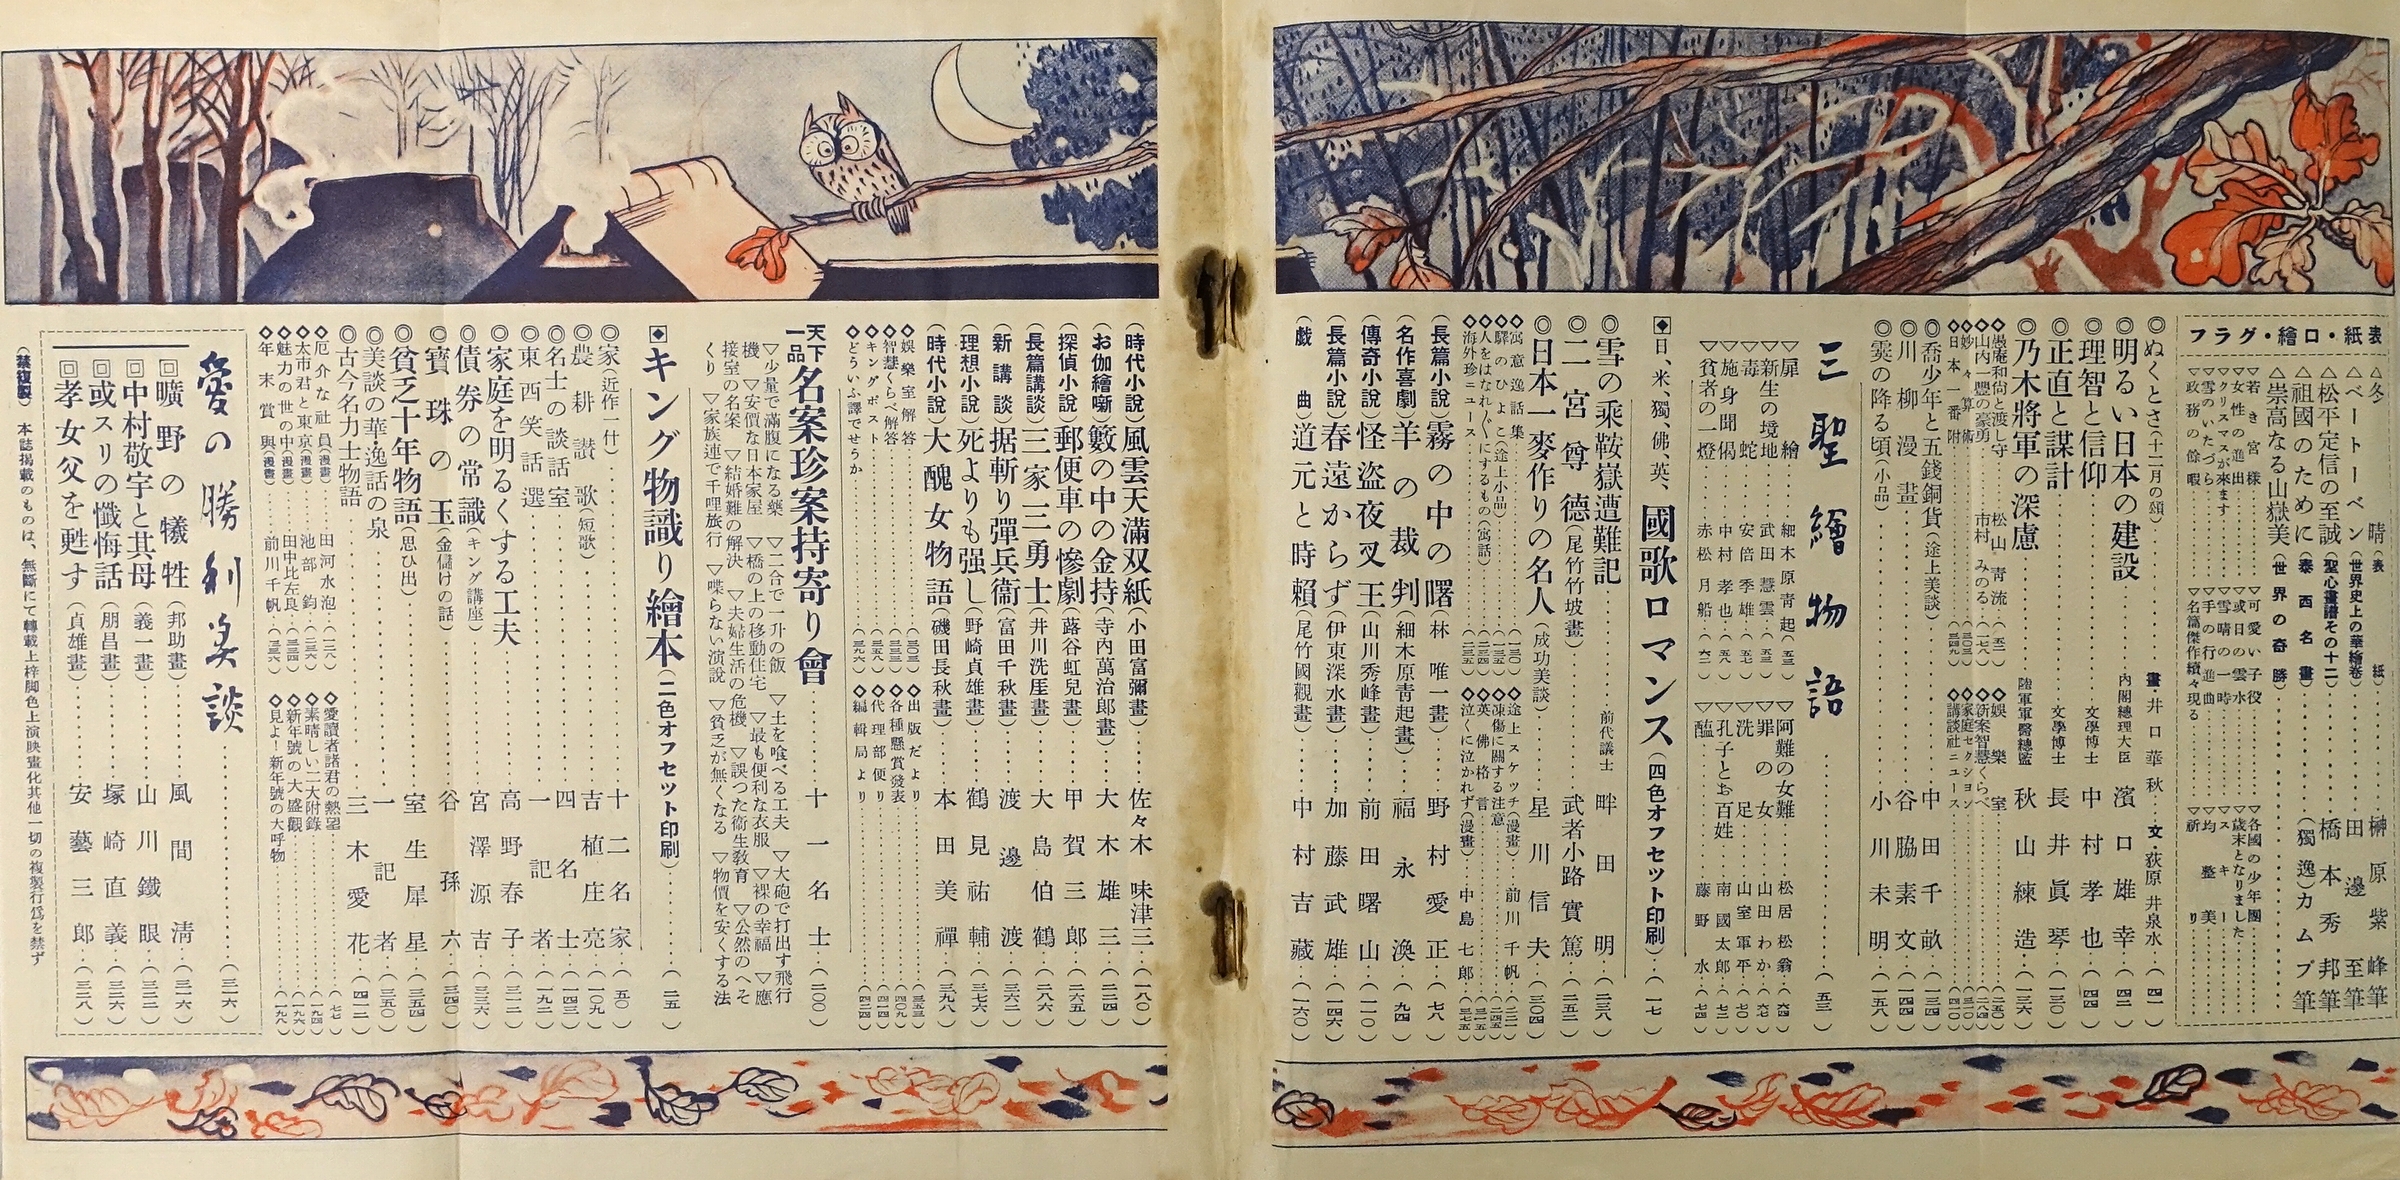 表紙・口繪・グラフ
△冬晴（表紙）……榊原紫峰筆
△ベートーベン（世界史上の華繪卷）……田邊至筆
△松平定信の至誠（聖心畫譜その十二）……橋本秀邦筆
△祖國のために（泰西名畫）……（獨逸）カムプ筆
△崇高なる山嶽美（世界の奇勝）
△若き宮様 ▽可愛い子役 ▽各國の少年團
▽女性の進出 ▽或日の雲水 ▽歳末となりました
▽クリスマスが來ます ▽雪晴の一時 ▽スキー
▽雪のいたづら ▽手の行進曲 ▽均整美
▽政務の餘暇 ▽名篇傑作續々現る ▽祈り
◎ぬくとさ（十二月の頌） 畫・井口華秋 文・荻原井泉水（四一）
◎明るい日本の建設……内閣總理大臣 濱口雄幸（四二）
◎理智と信仰……文學博士 中村孝也（四四）
◎正直と謀計……文學博士 長井眞琴（一三〇）
◎乃木將軍の深慮……陸軍軍醫總監 秋山練造（一三六）
◇愚庵和尚と渡し守……松山青流（五二）
◇山内一豐の豪勇……市村みのる（一七八）
◇妙々算術……（三〇三）
◇日本一番附……（三四九）
◇娯樂室……（二五〇）
◇新案智慧くらべ……（二六四）
◇家庭セクション……（三一〇）
◇講談社ニュース……（四一〇）
◎喬少年と五錢銅貨（途上美談）……中田千畝（一三四）
◎川柳漫畫……谷脇素文（一四四）
◎霙の降る頃（小品）……小川未明（一五八）
三聖繪物語……（五三）
▽扉繪 細木原青起（五三）
▽新生の境地 武田慧雲（五三）
▽毒蛇 安倍季雄（五七）
▽施身聞偈 中村孝也（五八）
▽貧者の一燈 赤松月船（六二）
▽阿難の女難 松居松翁（六四）
▽罪の女 山田わか（六七）
▽洗足 山室軍平（七〇）
▽孔子とお百姓 南國太郎（七二）
▽醢 藤野水（七四）
◆日、米、獨、佛、英、國歌ロマンス（四色オフセット印刷）（一七）
◎雪の乘鞍嶽遭難記……前代議士 畔田明（二三八）
◎二宮尊德（尾竹竹坡畫）……武者小路實篤（二五二）
◎日本一麥作りの名人（成功美談）……星川信夫（三〇四）
◇寓意逸話集……（一三〇）
◇驛のひよこ（途上小品）……（一三五）
◇人をはなれ〴〵にするもの（寓話）……（二三四）
◇海外珍ニュース……（二三五）
◇途上スケッチ（漫畫）……前川千帆（二三一）
◇凍傷に關する注意……（二四五）
◇英佛格言……（三一五）
◇泣くに泣かれず（漫畫）……中島七郎（三七五）
（長篇小説）霧の中の曙（林唯一畫）……野村愛正（七八）
（名作喜劇）羊の裁判（細木原青起畫）……福永渙（九四）
（傳奇小説）怪盜夜叉王（山川秀峰畫）……前田曙山（一一〇）
（長篇小説）春遠からず（伊東深水畫）……加藤武雄（一四六）
（戲曲）道元と時賴（尾竹國觀畫）……中村吉藏（一六〇）
（時代小説）風雲天滿双紙（小田富彌畫）……佐々木味津三（一八〇）
（お伽繪噺）籔の中の金持（寺内萬治郎畫）……大木雄三（二二四）
（探偵小説）郵便車の慘劇（蕗谷虹兒畫）……甲賀三郎（二六五）
（長篇講談）三家三勇士（井川洗厓畫）……大島伯鶴（二八六）
（新講談）据斬り彈兵衞（富田千秋畫）……渡邊渡（三六二）
（理想小説）死よりも强し（野崎貞雄畫）……鶴見祐輔（三七六）
（時代小説）大醜女物語（磯田長秋畫）……本田美禪（三九八）
◇娯樂室解答……（三〇三）
◇智慧くらべ解答……（三三三）
◇キングポスト……（三五八）
◇どういふ譯でせうか……（三九六）
◇出版だより……（三五三）
◇各種懸賞發表……（四〇九）
◇代理部便り……（四一四）
◇編輯局より……（四二四）
天下一品名案珍案持寄り會……十一名士（二〇〇）
▽少量で滿腹になる藥 ▽二合で一升の飯 ▽土を喰べる工夫 ▽大砲で打出す飛行
機 ▽安價な日本家屋 ▽橋の上の移動住宅 ▽最も便利な衣服 ▽裸の幸福 ▽應
接室の名案 ▽結婚難の解決 ▽夫婦生活の危機 ▽誤つた衞生敎育 ▽公然のへそ
くり ▽家族連で千哩旅行 ▽喋らない演說 ▽貧乏が無くなる ▽物價を安くする法
◆キング物識り繪本（二色オフセット印刷）……（二五）
◎家（近作一什）……十二名家（五〇）
◎農耕讃歌（短歌）……吉植庄亮（一〇九）
◎名士の談話室……四名士（一四三）
◎東西笑話選……一記者（一九二）
◎家庭を明るくする工夫……高野春子（三一二）
◎債券の常識（キング講座）……宮澤源吉（三三六）
◎寶珠の玉（金儲けの話）……谷孫六（三四〇）
◎貧乏十年物語（思ひ出）……室生犀星（三五四）
◎美談の華・逸話の泉……一記者（三五〇）
◎古今名力士物語……三木愛花（四一二）
◇厄介な社員（漫畫）……田河水泡（一二八）
◇太市君と東京（漫畫）……池部鈞（二三六）
◇魅力の世の中（漫畫）……田中比左良（三三四）
◇年末賞與（漫畫）……前川千帆（三三六）
◇愛讀者諸君の熱望……（七七）
◇素晴しい二大附錄……（一九四）
◇新年號の大盛觀……（一九六）
◇見よ！新年號の大呼物……（一九八）
愛の勝利美談……（三一六）
回曠野の犧牲（邦助畫）……風間淸（三一六）
回中村敬宇と其母（義一畫）……山川鐵眼（三二二）
回或スリの懺悔話（朋昌畫）……塚崎直義（三二六）
回孝女父を甦す（貞雄畫）……安藝三郎（三二八）
（禁複製）本誌掲載のものは、無斷にて轉載上梓脚色上演映畫化其他一切の複製行爲を禁ず